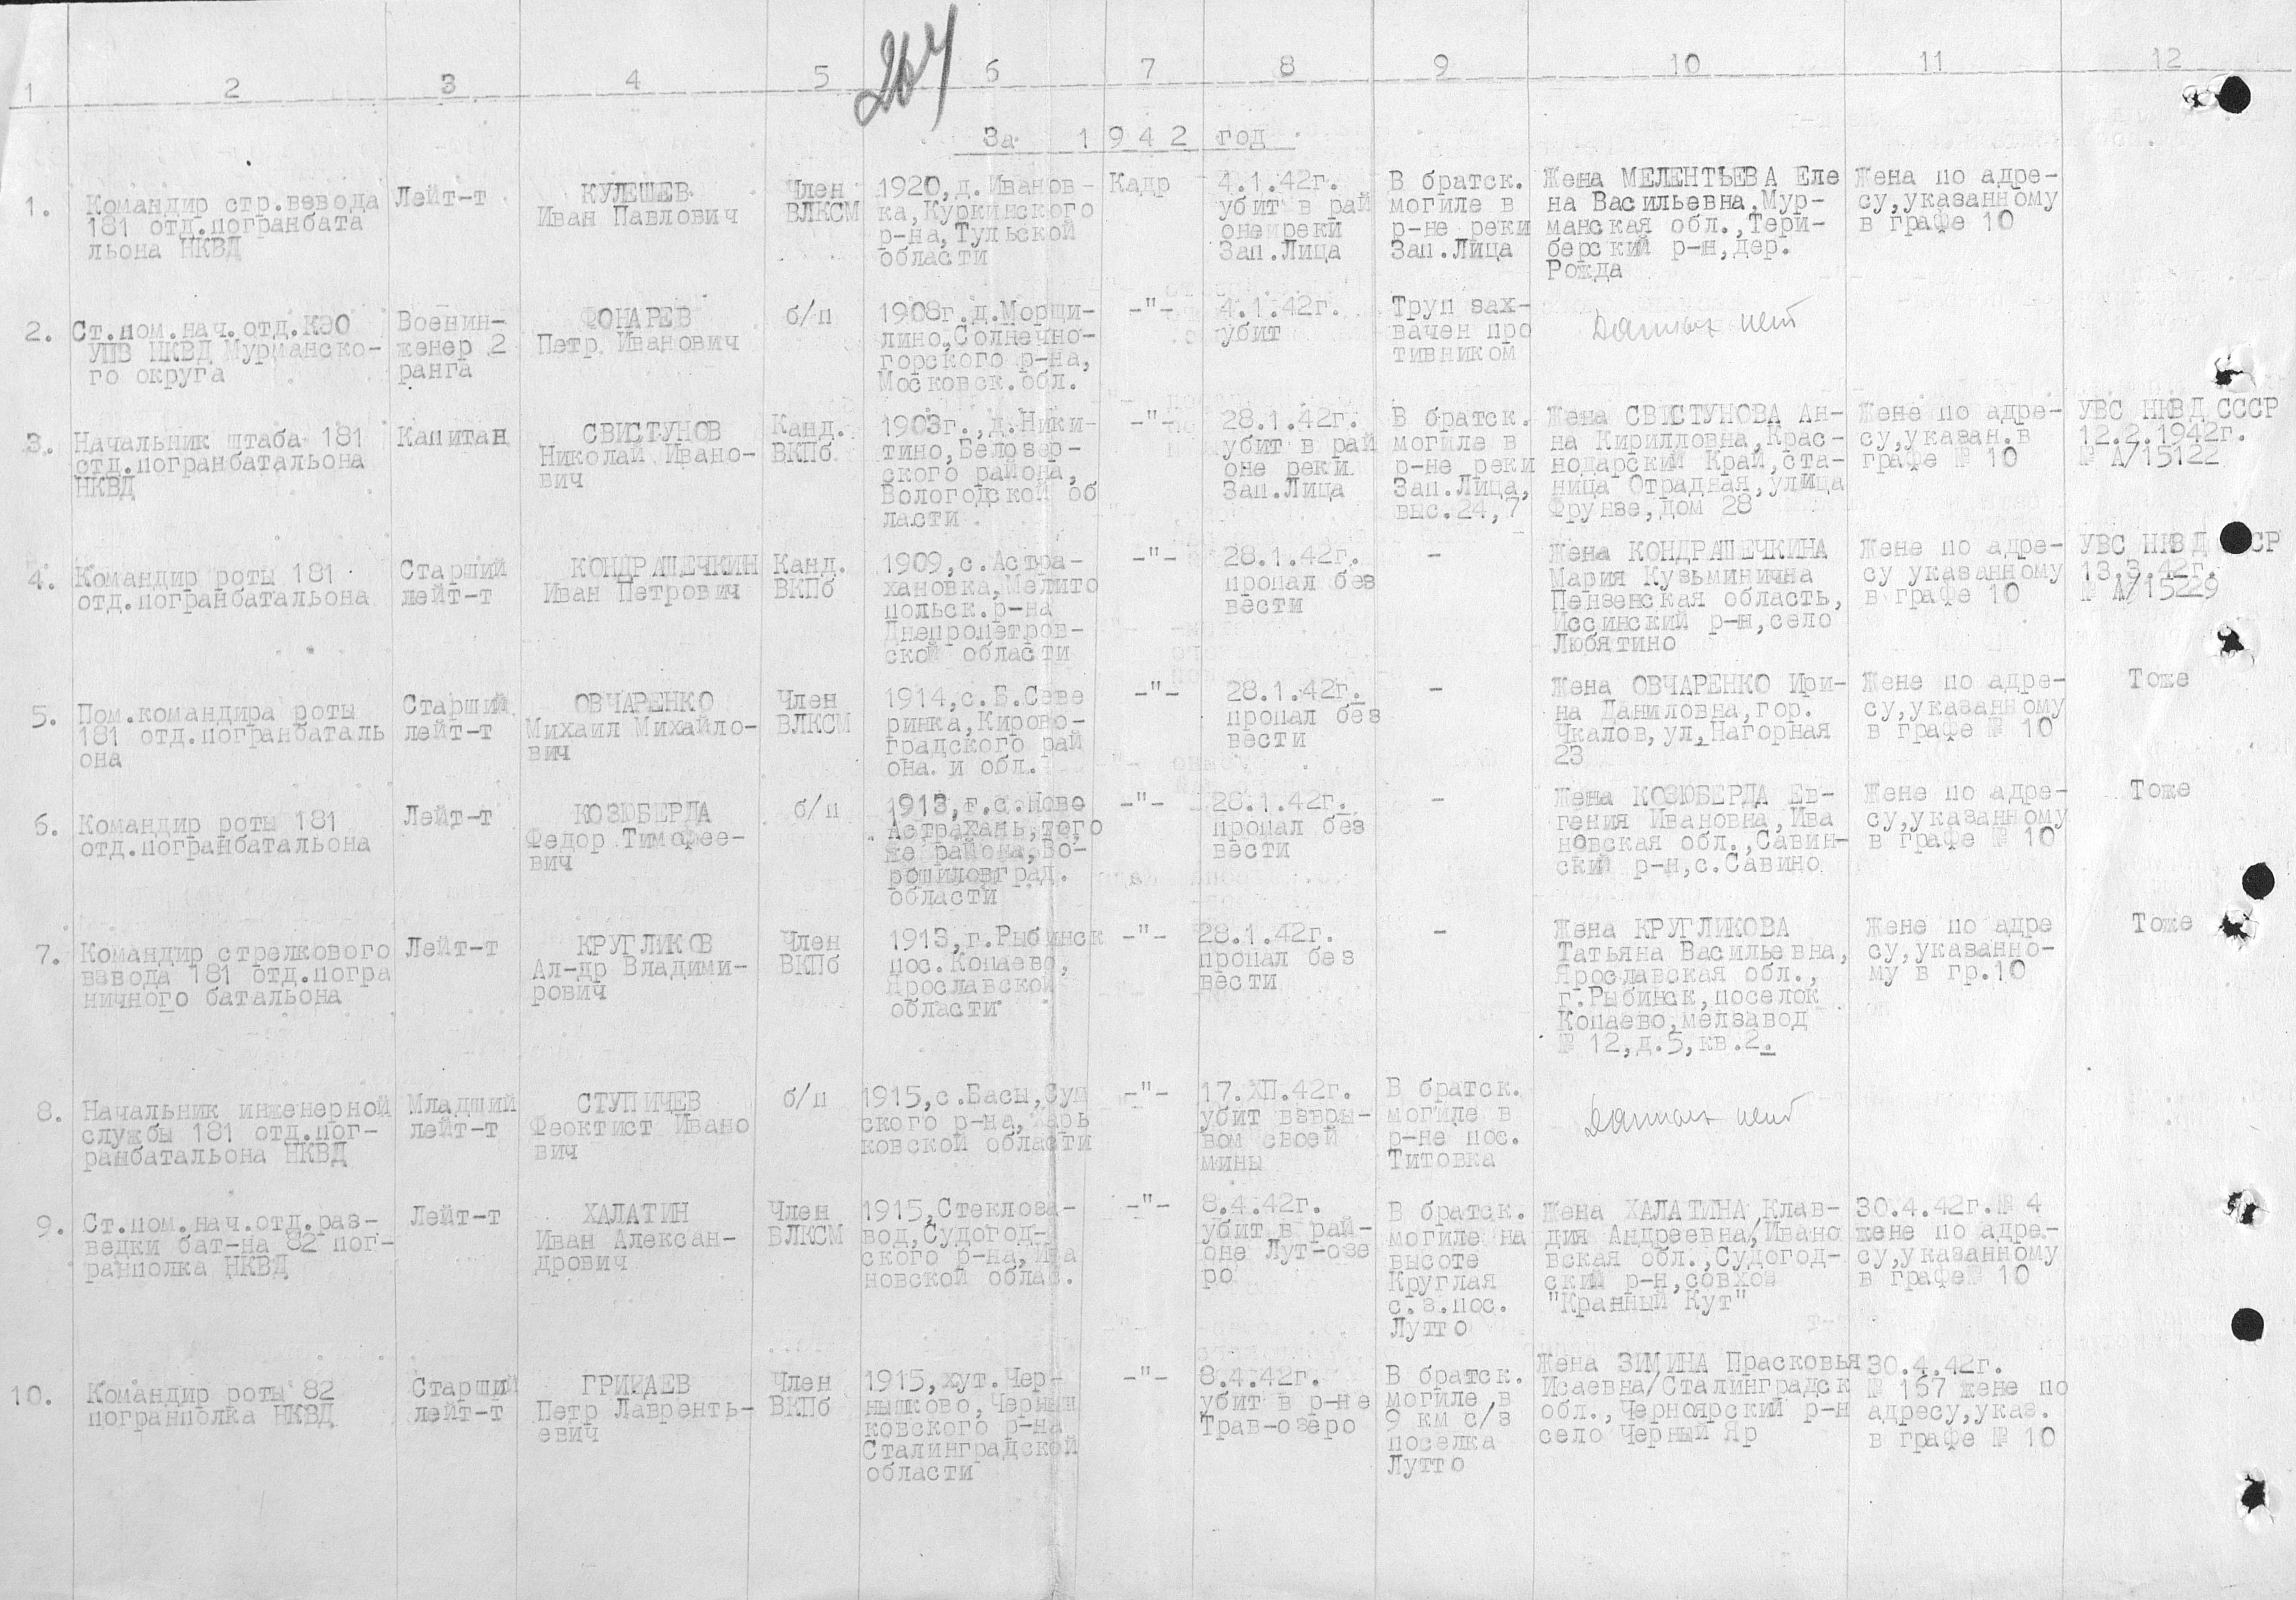 264
1 2 3 4 5 6 7 8 9 10 11 12
За 1942 год
1.
Командир стр.взвода
181 отд.погранбата
льона НКВД
Лейт-т
КУЛЕШЕВ
Иван Павлович
Член
ВЛКСМ
1920,д.Иванов-
ка,Куркинского
р-на,Тульской
области
Кадр
4.1.42г.
убит в рай
оне реки
Зап.Лица
В братск.
могиле в
р-не реки
Зап.Лица
Жена МЕЛЕНТЬЕВА Еле
на Васильевна,Мур-
манская обл.,Тери-
берский р-н,дер.
Рожда
Жена по адре-
су,указанному
в графе 10
2.
Ст.пом.нач.отд.КЭО
УПВ НКВД Мурманско-
го округа
Военин-
женер 2
ранга
ФОНАРЕВ
Петр Иванович
б/п
1908г.д.Морщи-
лино,Солнечно-
горского р-на,
Московск.обл.
-"-
4.1.42г.
убит
Труп зах-
вачен про
тивником
Данных нет
3.
Начальник штаба 181
отд.погранбатальона
НКВД
Капитан
СВИСТУНОВ
Николай Ивано-
вич
Канд.
ВКПб
1903г.,д.Ники-
тино,Белозер-
ского района,
Вологодской об
ласти
-"-
28.1.42г.
убит в рай
оне реки
Зап.Лица
В братск.
могиле в
р-не реки
Зап.Лица,
выс.24,7
Жена СВИСТУНОВА Ан-
на Кирилловна,Крас-
нодарский Край,ста-
ница Отрадная,улица
Фрунзе,дом 28
Жене по адре-
су,указан.в
графе № 10
УВС НКВД СССР
12.2.1942г.
№ А/15122
4.
Командир роты 181
отд.погранбатальона
Старший
лейт-т
КОНДРАШЕЧКИН
Иван Петрович
Канд.
ВКПб
1909,с.Астра-
хановка,Мелито
польск.р-на
Днепропетров-
ской области
-"-
28.1.42г.
пропал без
вести
-
Жена КОНДРАШЕЧКИНА
Мария Кузьминична
Пензенская область,
Иссинский р-н,село
Любятино
Жене по адре-
су указанному
в графе 10
УВС НКВД СР
13.3.42г.
№ А/15229
5.
Пом.командира роты
181 отд.погранбаталь
она
Старший
лейт-т
ОВЧАРЕНКО
Михаил Михайло-
вич
Член
ВЛКСМ
1914,с.Б.Севе
ринка,Кирово-
градского рай
она и обл.
-"-
28.1.42г.
пропал без
вести
-
Жена ОВЧАРЕНКО Ири-
на Даниловна,гор.
Чкалов,ул,Нагорная
23
Жене по адре-
су,указанному
в графе № 10
Тоже
6.
Командир роты 181
отд.погранбатальона
Лейт-т
КОЗЮБЕРДА
Федор Тимофее-
вич
б/п
1913,г.с.Ново
Астрахань,того
же района,Во-
рошиловград.
области
-"-
28.1.42г.
пропал без
вести
-
Жена КОЗЮБЕРДА Ев-
гения Ивановна,Ива
новская обл.,Савин-
ский р-н,с.Савино
Жене по адре-
су,указанному
в графе № 10
Тоже
7.
Командир стрелкового
взвода 181 отд.погра
ничного батальона
Лейт-т
КРУГЛИКОВ
Ал-др Владими-
рович
Член
ВКПб
1913,г.Рыбинск
пос.Копаево,
Ярославской
области
-"-
28.1.42г.
пропал без
вести
-
Жена КРУГЛИКОВА
Татьяна Васильевна,
Ярославская обл.,
г.Рыбинск,поселок
Копаево,мелзавод
№ 12,д.5,кв.2.
Жене по адре
су,указанно-
му в гр.10
Тоже
8.
Начальник инженерной
службы 181 отд.пог-
ранбатальона НКВД
Младший
лейт-т
СТУПИЧЕВ
Феоктист Ивано
вич
б/п
1915,с.Басы,Сум
ского р-на,Харь
ковской области
-"-
17.ХП.42г.
убит взры-
вом своей
мины
В братск.
могиле в
р-не пос.
Титовка
Данных нет
9.
Ст.пом.нач.отд.раз-
ведки бат-на 82 пог-
ранполка НКВД
Лейт-т
ХАЛАТИН
Иван Алексан-
дрович
Член
ВЛКСМ
1915,Стеклоза-
вод,Судогод-
ского р-на,Ива
новской облас.
-"-
8.4.42г.
убит в рай-
оне Лут-озе
ро
В братск.
могиле на
высоте
Круглая
с.з.пос.
Лутто
Жена ХАЛАТИНА Клав-
дия Андреевна/Ивано
вская обл.,Судогод-
ский р-н,совхоз
"Кранный Кут"
30.4.42г.№ 4
жене по адре-
су,указанному
в графе№ 10
10.
Командир роты 82
погранполка НКВД
Старший
лейт-т
ГРИКАЕВ
Петр Лавренть-
евич
Член
ВКПб
1915,хут.Чер-
нышково,Черныш
ковского р-на
Сталинградской
области
-"-
8.4.42г.
убит в р-не
Трав-озеро
В братск.
могиле в
9 км с/з
поселка
Лутто
Жена ЗИМИНА Прасковья
Исаевна/Сталинградск
обл.,Черноярский р-н
село Черный Яр
30.4.42г.
№ 157 жене по
адресу,указ.
в графе № 10